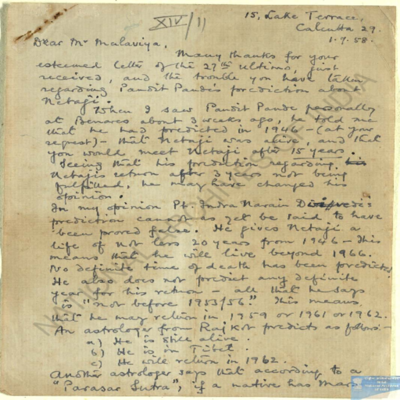 XIV/11
15, Lake Terrace,
Calcutta 29.
1.9.58.
Dear Mr Malaviya,
Many thanks for your
esteemed letter of the 27th ultimo, just
received, and the trouble you have taken
regarding Pandit Pande's prediction about
Netaji.
When I saw Pandit Pande personally
at Benares about 3 weeks ago, he told me
that he had predicted in 1946 - (at your
request) - that Netaji was alive, and that
you would meet Netaji after 15 years.
Seeing that his prediction regarding his
Netaji's return after 3 years not being
fulfilled, he may have changed his
opinion.
In my opinion Pt. Indra Narain Dwivedi's
prediction cannot as yet be said to have
been proved false. He gives Netaji a
life of not less 20 years from 1946 - This
means that he will live beyond 1966.
No definite time of death has been predicted.
He also does not predict any definite
year for his return - all that he says
is "not before 1953/56". This means
that he may return in 1959 or 1961 or 1962.
An astrologer from Rajkot predicts as follows:-
a) He is still alive.
b) He is in Tibet.
c) He will return in 1962.
Another astrologer says that according to a
"Parasar Sutra", if a native has Mars